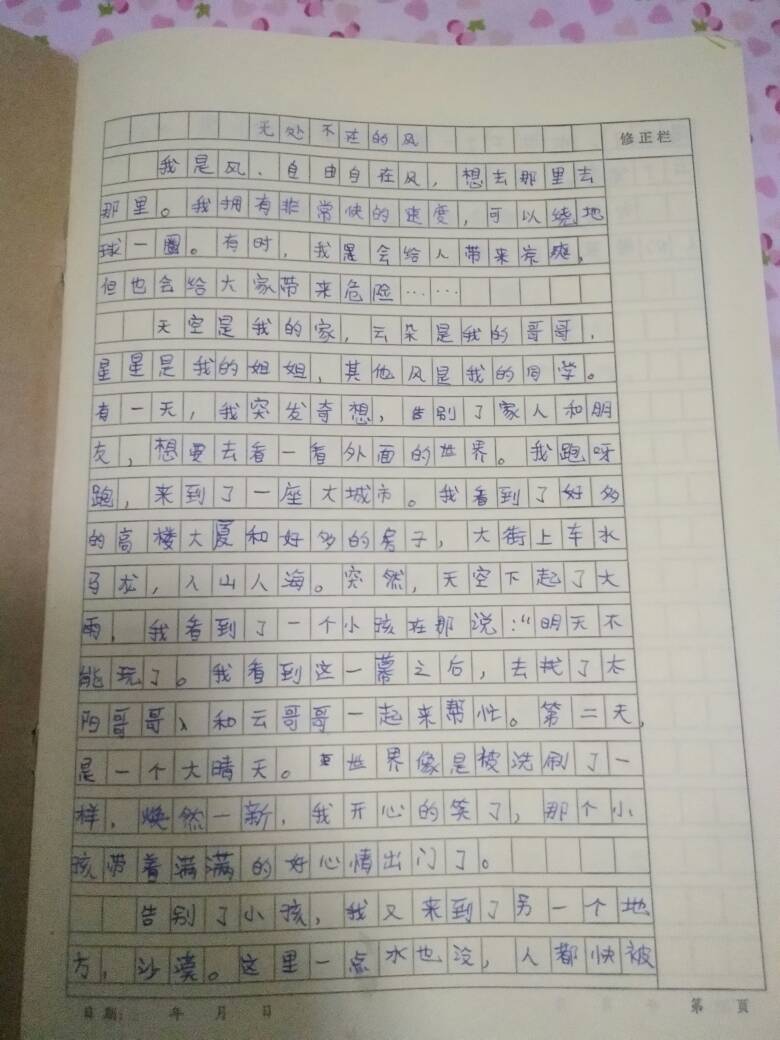 无处不在的风
修正栏
我是风、自由自在风，想去那里去
那里。我拥有非常快的速度，可以绕地
球一圈。有时，我是会给人带来凉爽，
但也会给大家带来危险……
天空是我的家，云朵是我的哥哥，
星星是我的姐姐，其他风是我的同学。
有一天，我突发奇想，告别了家人和朋
友，想要去看一看外面的世界。我跑呀
跑，来到了一座大城市。我看到了好多
的高楼大厦和好多的房子，大街上车水
马龙，人山人海。突然，天空下起了大
雨，我看到了一个小孩在那说：“明天不
能玩了。我看到这一幕之后，去找了太
阳哥哥、和云哥哥一起来帮忙。第二天，
是一个大晴天。世界像是被洗刷了一
样，焕然一新，我开心的笑了，那个小
孩带着满满的好心情出门了。
告别了小孩，我又来到了另一个地
方，沙漠。这里一点水也没，人都快被
日期： 年 月 日
第 页